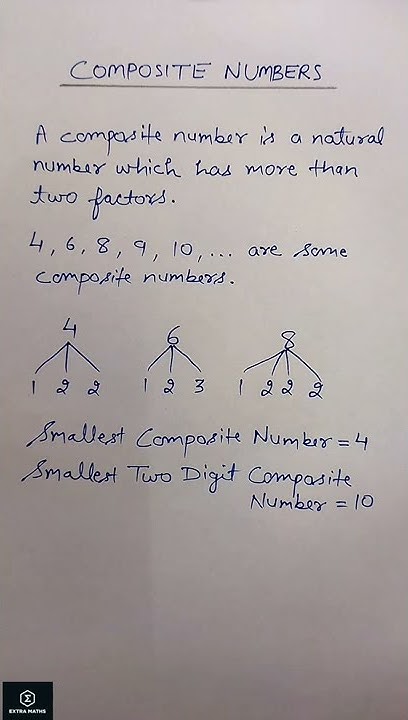 COMPOSITE NUMBERS
A composite number is a natural
number which has more than
two factors.
4, 6, 8, 9, 10, ... are some
composite numbers.
4 6 8
1 2 2 1 2 3 1 2 2 2
Smallest Composite Number = 4
Smallest Two Digit Composite
Number = 10
EXTRA MATHS